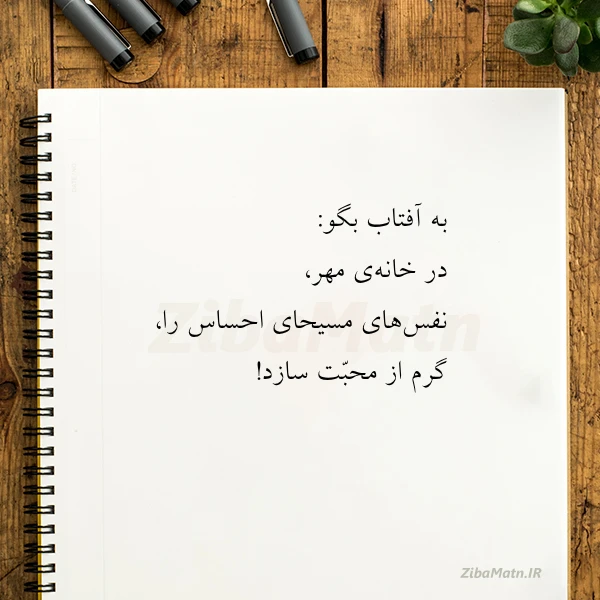 به آفتاب بگو:
در خانه‌ی مهر،
نفس‌های مسیحای احساس را،
گرم از محبّت سازد!
ZibaMatn
ZibaMatn.IR